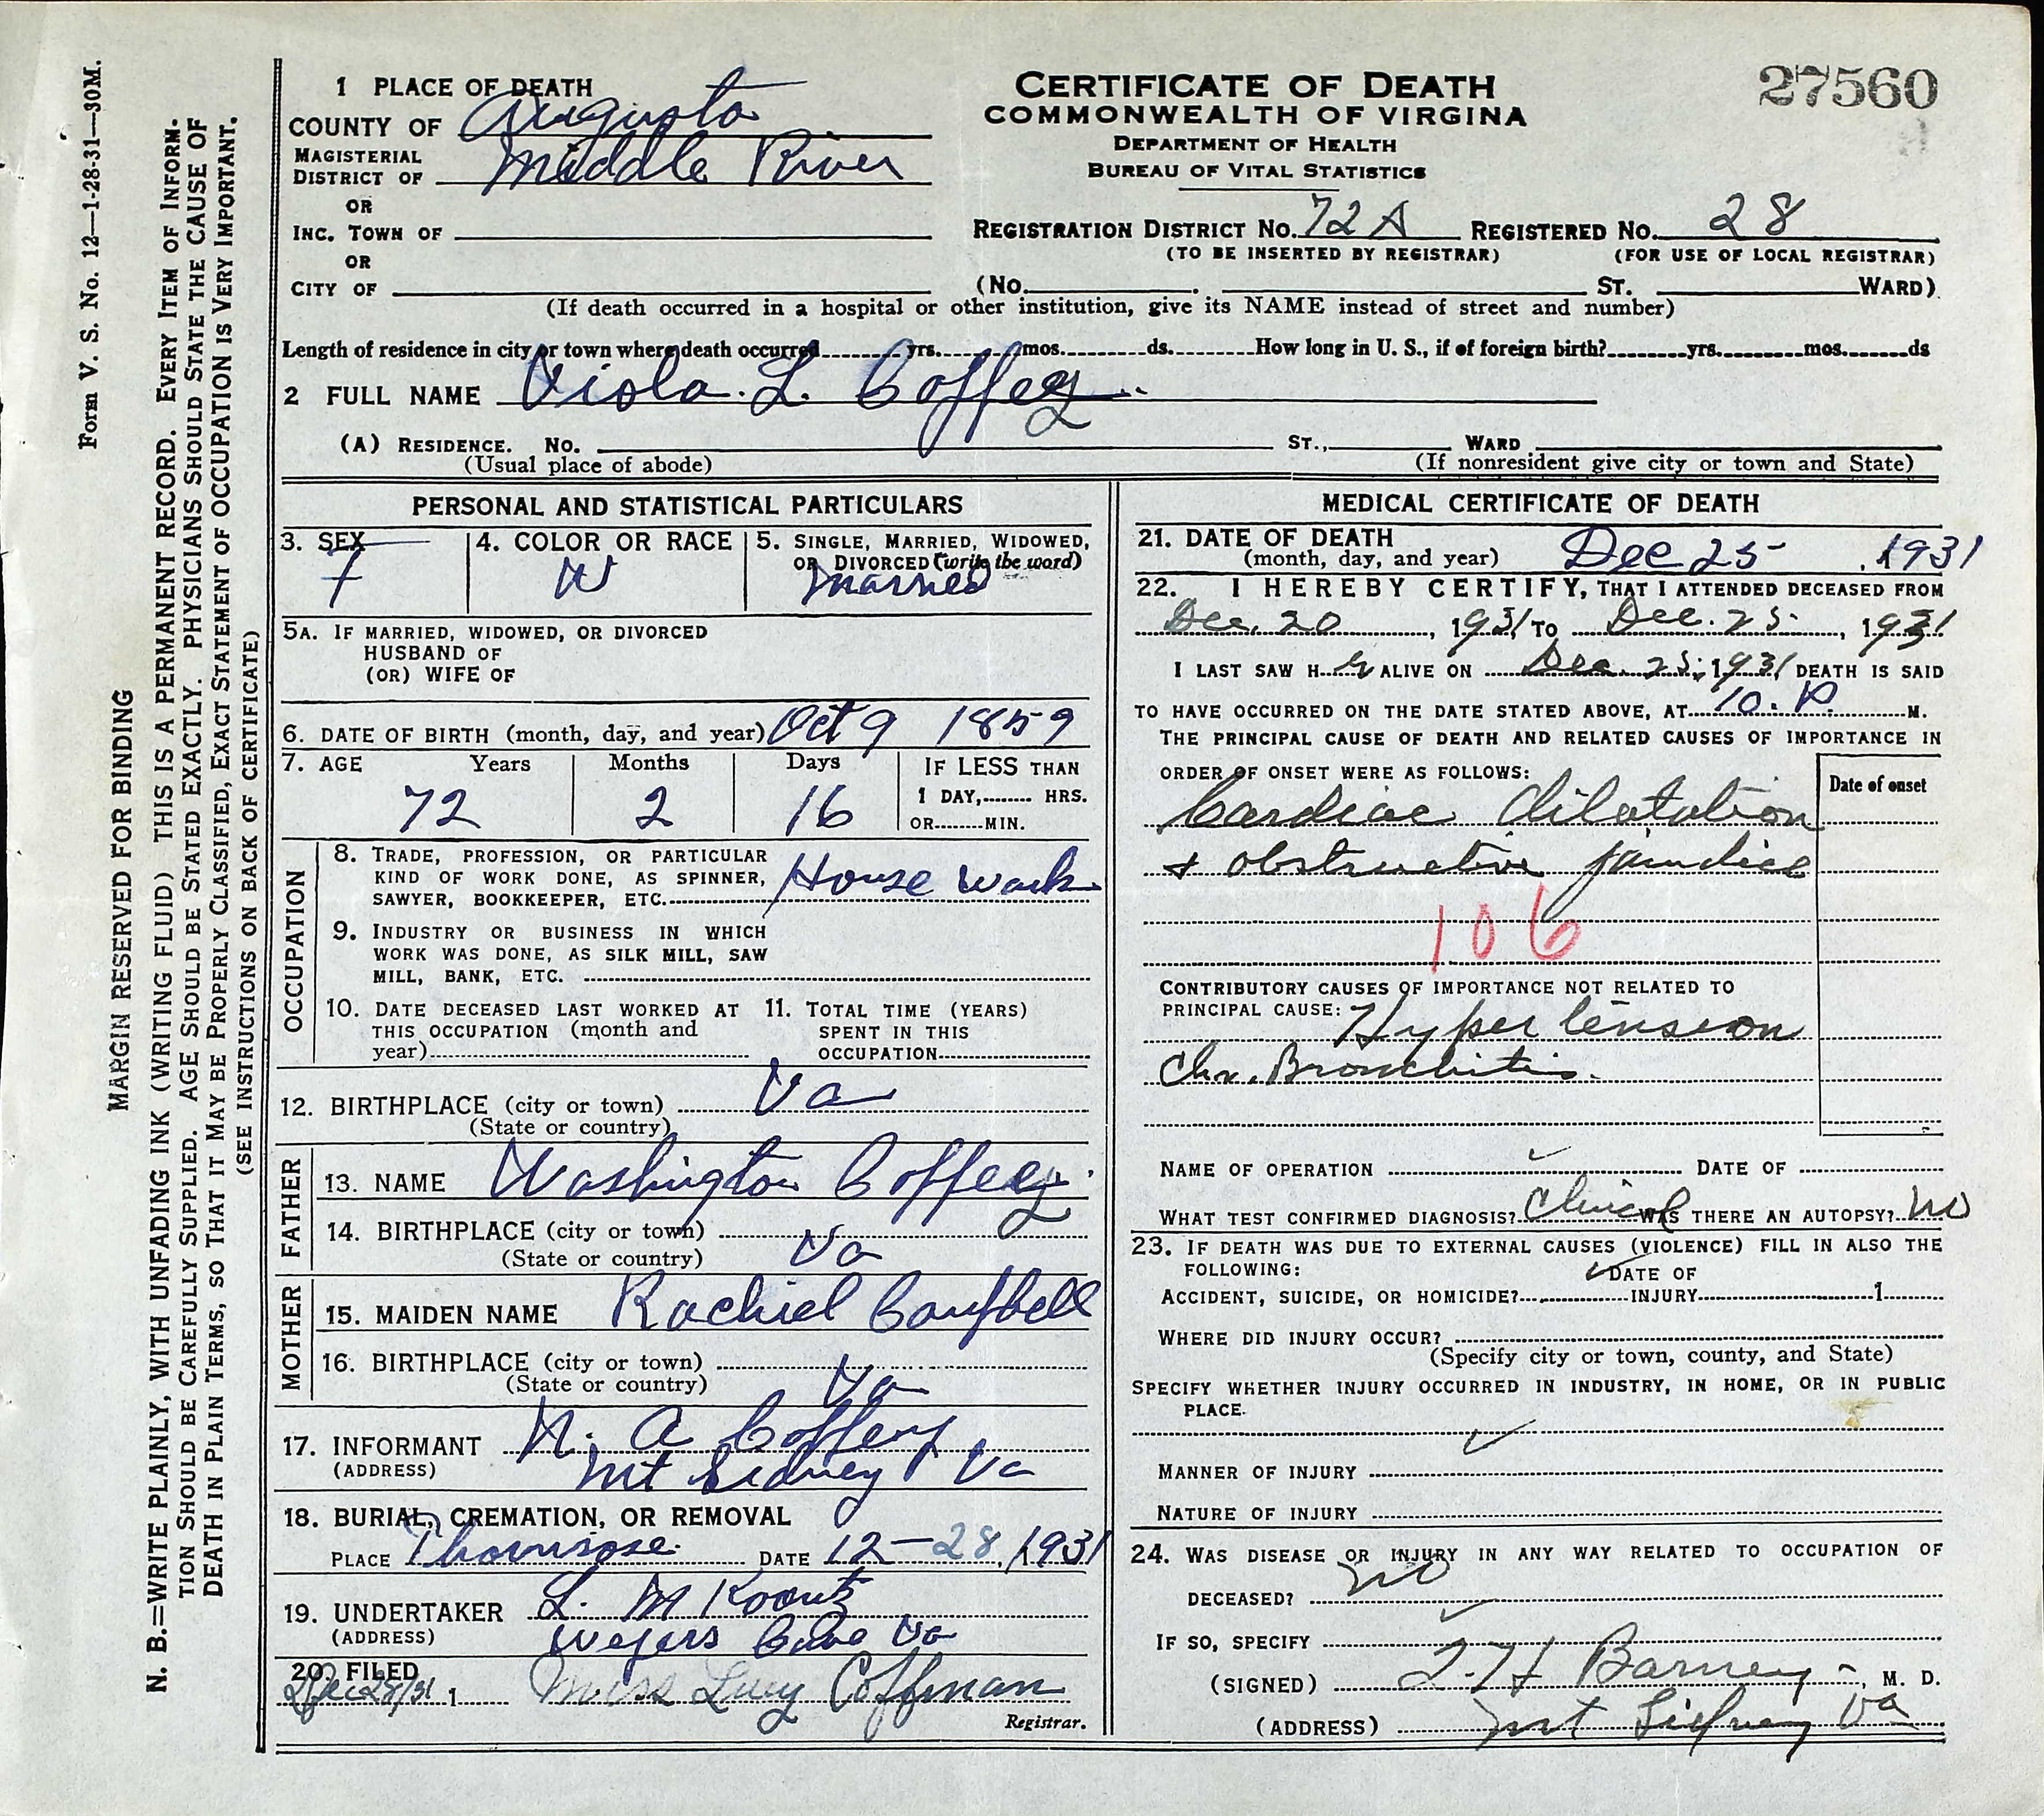 Form V. S. No. 12—1-28-31—30M.
MARGIN RESERVED FOR BINDING
N. B.=WRITE PLAINLY, WITH UNFADING INK (WRITING FLUID) THIS IS A PERMANENT RECORD. EVERY ITEM OF INFORM-
TION SHOULD BE CAREFULLY SUPPLIED. AGE SHOULD BE STATED EXACTLY. PHYSICIANS SHOULD STATE THE CAUSE OF
DEATH IN PLAIN TERMS, SO THAT IT MAY BE PROPERLY CLASSIFIED, EXACT STATEMENT OF OCCUPATION IS VERY IMPORTANT.
(SEE INSTRUCTIONS ON BACK OF CERTIFICATE)
27560
CERTIFICATE OF DEATH
COMMONWEALTH OF VIRGINA
DEPARTMENT OF HEALTH
BUREAU OF VITAL STATISTICS
1 PLACE OF DEATH
COUNTY OF Augusta
MAGISTERIAL DISTRICT OF Middle River
OR
INC. TOWN OF
OR
CITY OF
REGISTRATION DISTRICT No. 72A REGISTERED No. 28
(TO BE INSERTED BY REGISTRAR) (FOR USE OF LOCAL REGISTRAR)
(No. ST. WARD)
(If death occurred in a hospital or other institution, give its NAME instead of street and number)
Length of residence in city or town where death occurred yrs. mos. ds. How long in U. S., if of foreign birth? yrs. mos. ds
2 FULL NAME Viola. L. Coffey
(A) RESIDENCE. No. ST., WARD
(Usual place of abode) (If nonresident give city or town and State)
PERSONAL AND STATISTICAL PARTICULARS
3. SEX f
4. COLOR OR RACE W
5. SINGLE, MARRIED, WIDOWED, OR DIVORCED (write the word) Married
5A. IF MARRIED, WIDOWED, OR DIVORCED
HUSBAND OF
(OR) WIFE OF
6. DATE OF BIRTH (month, day, and year) Oct 9 1859
7. AGE Years Months Days IF LESS THAN
72 2 16 1 DAY, HRS.
OR MIN.
OCCUPATION
8. TRADE, PROFESSION, OR PARTICULAR
KIND OF WORK DONE, AS SPINNER,
SAWYER, BOOKKEEPER, ETC. House Work
9. INDUSTRY OR BUSINESS IN WHICH
WORK WAS DONE, AS SILK MILL, SAW
MILL, BANK, ETC.
10. DATE DECEASED LAST WORKED AT
THIS OCCUPATION (month and
year)
11. TOTAL TIME (YEARS)
SPENT IN THIS
OCCUPATION
12. BIRTHPLACE (city or town) Va
(State or country)
FATHER
13. NAME Washington Coffey
14. BIRTHPLACE (city or town)
(State or country) Va
MOTHER
15. MAIDEN NAME Rachiel Campbell
16. BIRTHPLACE (city or town)
(State or country) Va
17. INFORMANT N. A Coffey
(ADDRESS) Mt Sidney Va
18. BURIAL, CREMATION, OR REMOVAL
PLACE Thornrose DATE 12-28, 1931
19. UNDERTAKER L. M Koontz
(ADDRESS) Weyers Cave Va
20. FILED
Dec 28/31 1 Miss Lucy Coffman
Registrar.
MEDICAL CERTIFICATE OF DEATH
21. DATE OF DEATH
(month, day, and year) Dec 25 , 1931
22. I HEREBY CERTIFY, THAT I ATTENDED DECEASED FROM
Dec. 20, 1931 TO Dec. 25, 1931
I LAST SAW Her ALIVE ON Dec. 25, 1931 DEATH IS SAID
TO HAVE OCCURRED ON THE DATE STATED ABOVE, AT 10. P. M.
THE PRINCIPAL CAUSE OF DEATH AND RELATED CAUSES OF IMPORTANCE IN
ORDER OF ONSET WERE AS FOLLOWS:
Date of onset
Cardiac dilatation
+ obstructive jaundice
106
CONTRIBUTORY CAUSES OF IMPORTANCE NOT RELATED TO
PRINCIPAL CAUSE: Hypertension
Chr. Bronchitis.
NAME OF OPERATION DATE OF
WHAT TEST CONFIRMED DIAGNOSIS? Clinical WAS THERE AN AUTOPSY? no
23. IF DEATH WAS DUE TO EXTERNAL CAUSES (VIOLENCE) FILL IN ALSO THE
FOLLOWING:
ACCIDENT, SUICIDE, OR HOMICIDE? DATE OF INJURY 1
WHERE DID INJURY OCCUR?
(Specify city or town, county, and State)
SPECIFY WHETHER INJURY OCCURRED IN INDUSTRY, IN HOME, OR IN PUBLIC
PLACE.
MANNER OF INJURY
NATURE OF INJURY
24. WAS DISEASE OR INJURY IN ANY WAY RELATED TO OCCUPATION OF
DECEASED? no
IF SO, SPECIFY
(SIGNED) Barney, M. D.
(ADDRESS) Mt Sidney Va